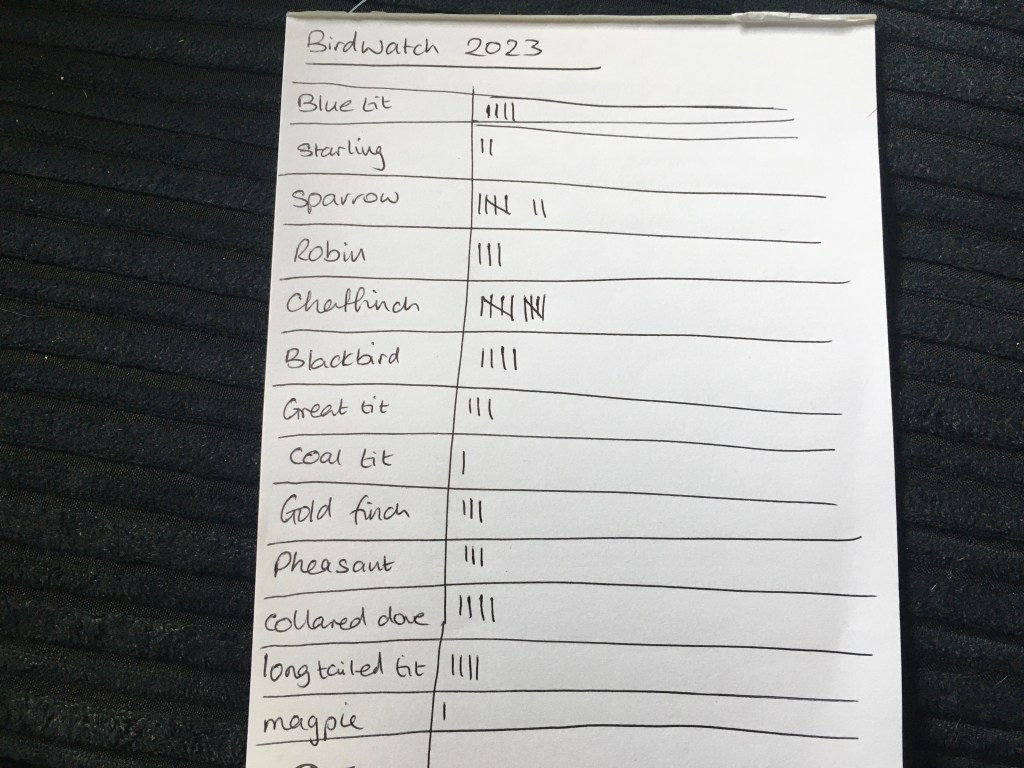 Birdwatch 2023
Blue tit IIII
Starling II
Sparrow IIII II
Robin III
Chaffinch IIII IIII
Blackbird IIII
Great tit III
Coal tit I
Gold finch III
Pheasant III
Collared dove IIII
long tailed tit IIII
magpie I